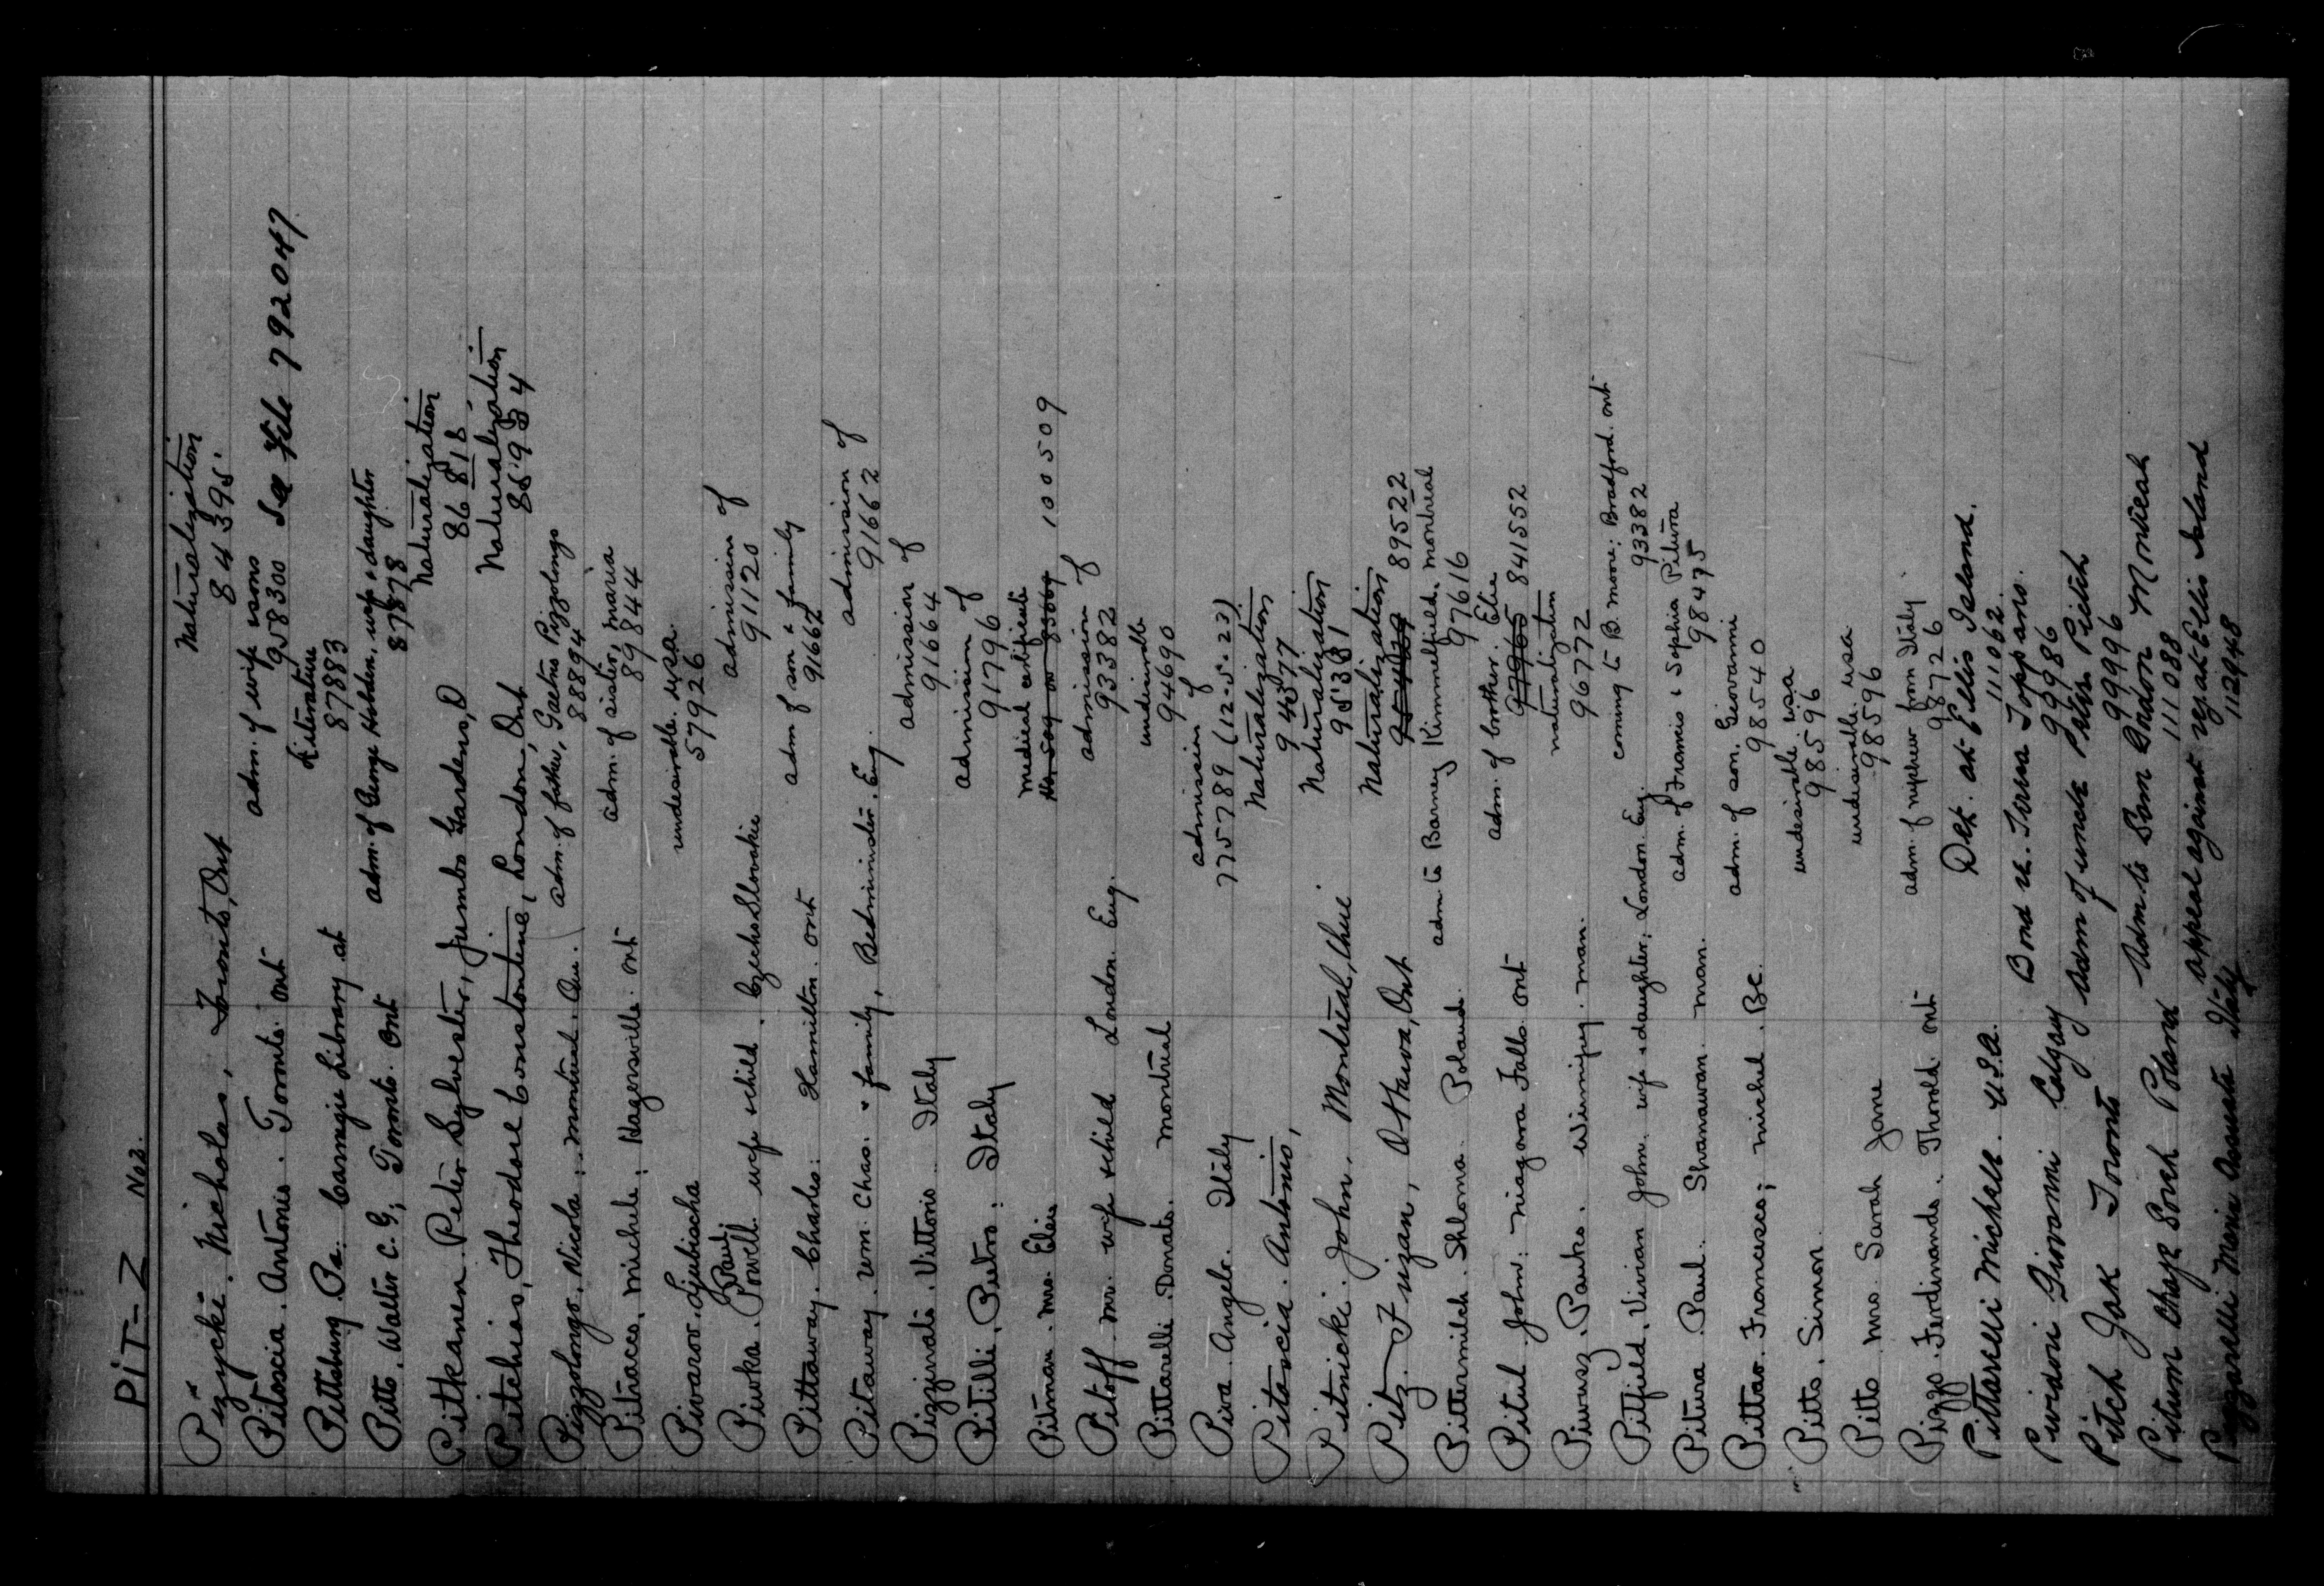 PIT-Z No 2.
Pizycki. Nicholas, Toronto, Ont Naturalization
84395
Pitoscia. Antonio. Toronto. Ont adm. of wife & sons
958300 See File 792047
Pittsburg. Pa. Carnegie Library at Literature
87883
Pitts. Walter C. G; Toronto. Ont adm. of George Hebden, wife & daughter
87878
Pitkanen. Peter Sylvester, Jumbo Gardens, O Naturalization
86818
Pitchias, Theodore Constantine, London, Ont Naturalization
Pizzolongo. Nicola; Montreal. Que. adm. of father, Gaetno Pizzolongo
88894
Pitracco. Michele; Hagersville. Ont adm. of sister, Maria
89844
Pivarov. Ljubischa undesirable. USA.
57926
Paul
Pivoka. Powell. wife & child. Czecho Slovakia admission of
91120
Pittaway. Charles: Hamilton. Ont adm of son & family
91662
Pitaway. Wm. Chas. & family, Bedminster. Eng. admission of
91662
Pizzinato. Vittorio. Italy admission of
91664
Pitilli. Pietro: Italy admission of
91796
Pitman. Mrs. medical certificate
100509
Pitoff. Mr. wife & child London. Eng. admission of
93382
Pittarelli. Donato. Montreal undesirable
94690
Piva. Angelo. Italy admission of
775789 (12-5-23)
Pitoscia. Antonio, Naturalization
94577
Pitnicki. John. Montreal, Que. Naturalization
Pitz. Fuzan, Ottawa, Ont Naturalization
89522
Pittermilch. Shloma. Poland. adm to Barney Kimmelfield. Montreal
97616
Pitul. John: Niagara Falls. Ont adm. of brother. Elie
97965 841552
Piwusz. Pauko. Winnipeg. Man. naturalization
96772
Pitfield. Vivian John. wife & daughter; London. Eng. coming to B. Moore; Bradford. Ont
93382
Pitura. Paul. Shanawan. Man. adm. of Francis & Sophia Pitura
98475
Pittao. Francesco; Michel. BC. adm. of son. Giovanni
98540
Pitts. Simon. undesirable. USA
98596
Pitts Mrs. Sarah Jane undesirable. USA
98596
Pizzo. Ferdinando. Thorold. Ont adm. of nephew from Italy.
98726
Pittarelli Michele. U.S.A. Det. at Ellis Island.
111062
Pividori Giovanni Calgary Bond
99986
Pitch Jak Toronto Adm of uncle Peter Pitch
99996
Pitum Chaze Sorch Poland Adm. to Sam Montreal
111088
Pizzarelli Maria Assunta Italy appeal against rej. at Ellis Island
112948